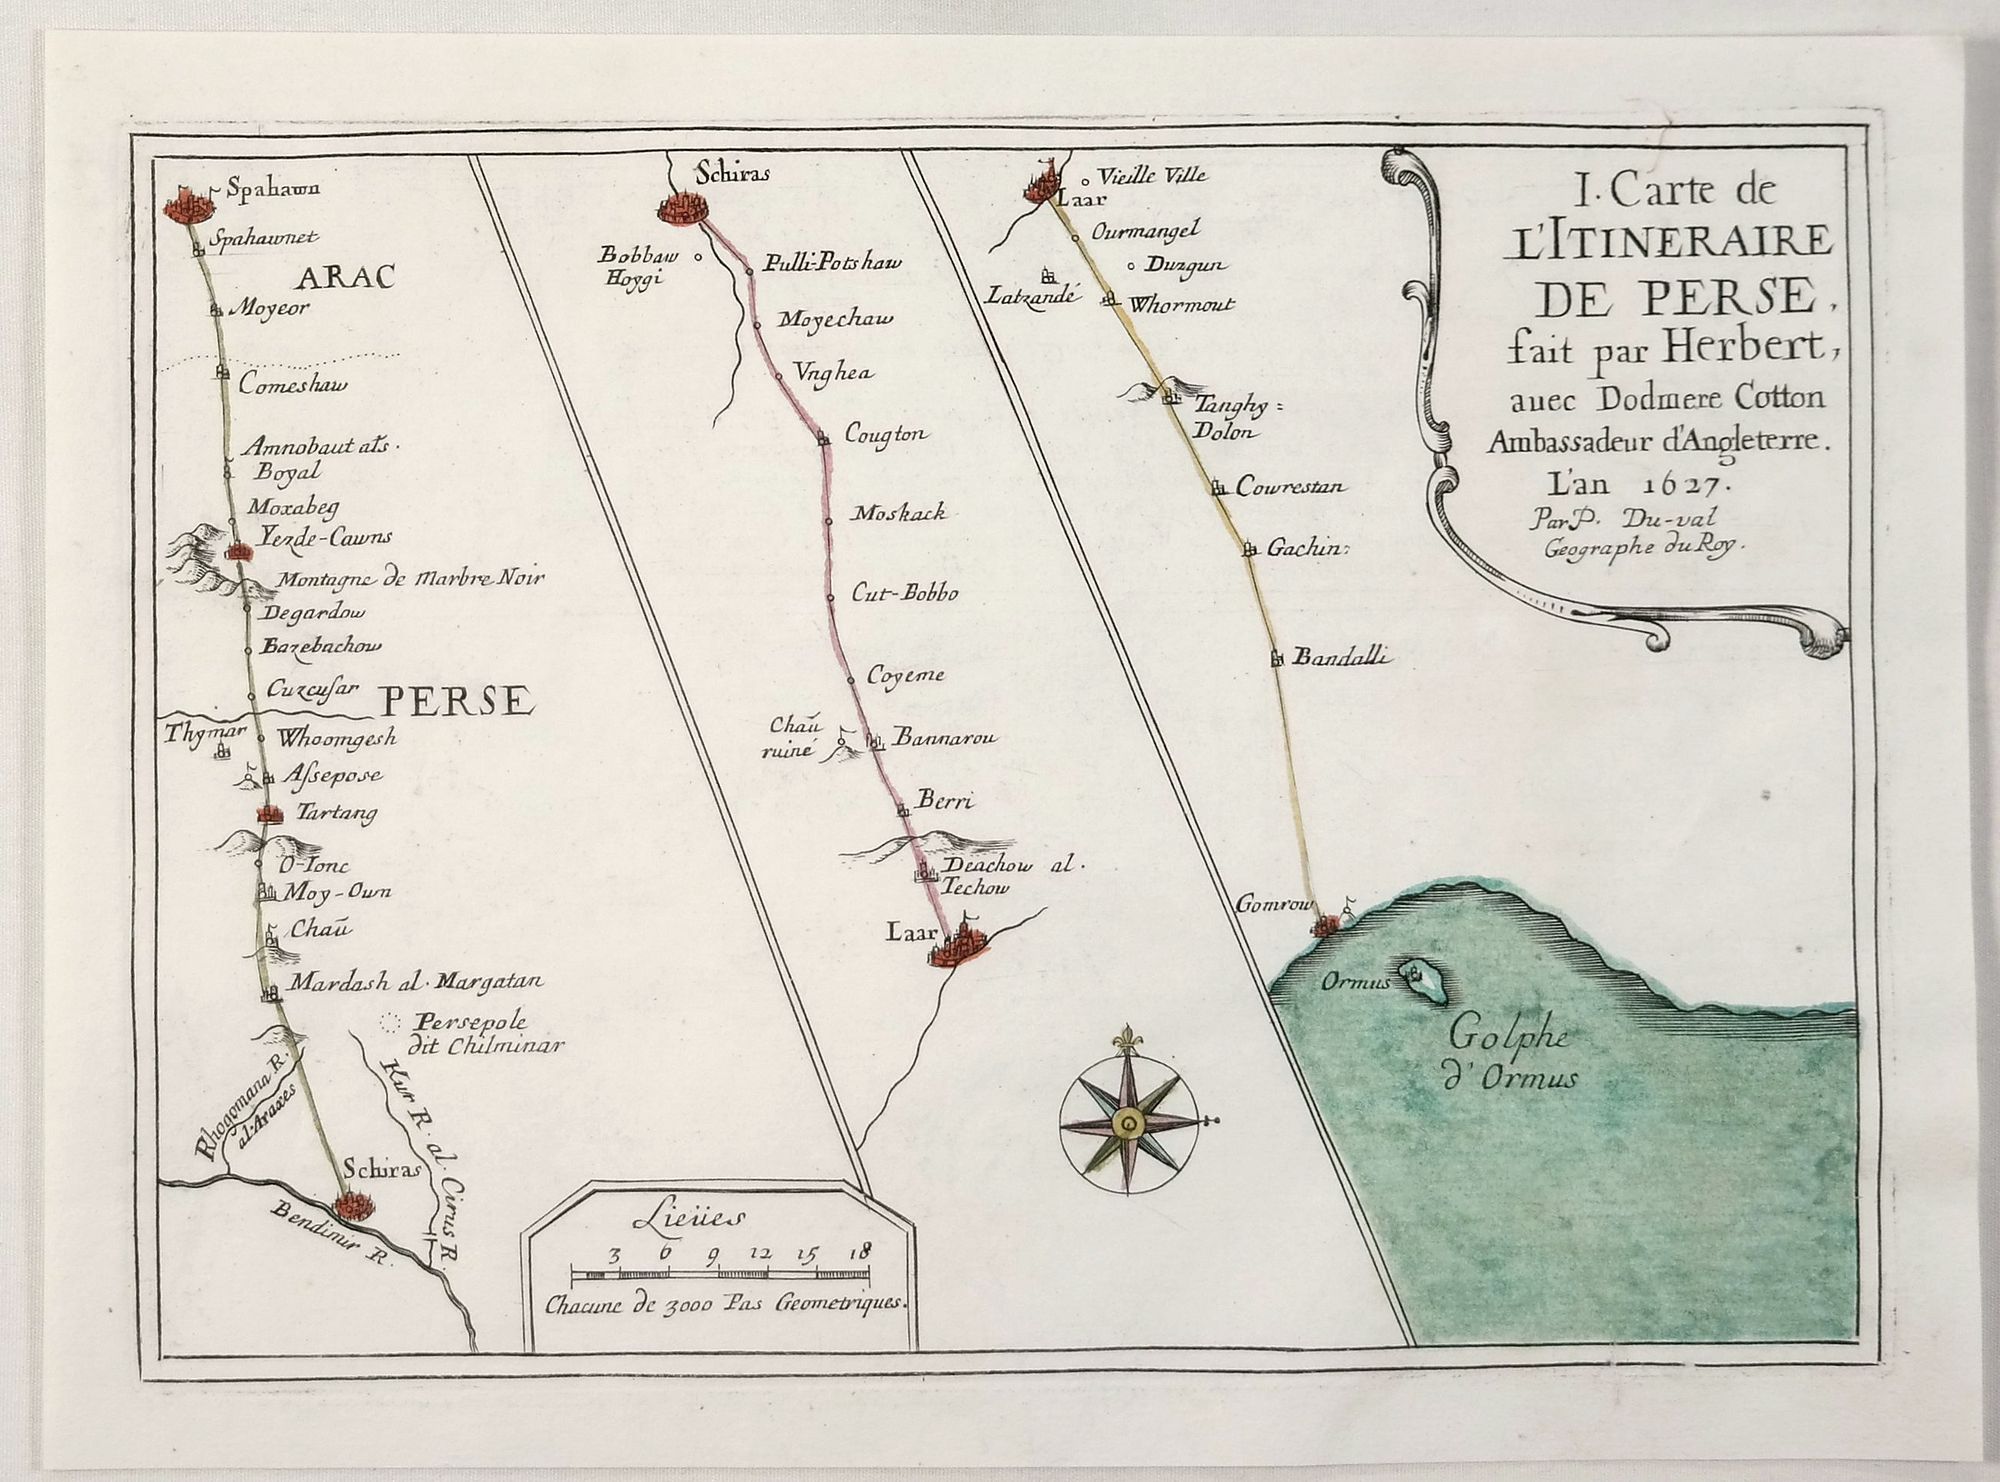 I. Carte de
L'ITINERAIRE
DE PERSE,
fait par Herbert,
auec Dodmere Cotton
Ambassadeur d'Angleterre.
L'an 1627.
Par P. Du-val
Geographe du Roy.
Spahawn
Spahawnet
ARAC
Moyeor
Comeshaw
Amnobaut als.
Boyal
Moxabeg
Yezde-Cawns
Montagne de Marbre Noir
Degardow
Bazebachow
Cuzcuſar
PERSE
Thymar
Whoomgesh
Aſsepose
Tartang
O-Ionc
Moy-Own
Chaū
Mardash al. Margatan
Persepole
dit Chilminar
Rhogomana R.
al. Araxes
Kur R. al. Cirus R.
Schiras
Bendimir R.
Schiras
Bobbaw
Hoygi
Pulli-Potshaw
Moyechaw
Vnghea
Cougton
Moskack
Cut-Bobbo
Coyeme
Chaū
ruiné
Bannarou
Berri
Deachow al.
Techow
Laar
Vieille Ville
Laar
Ourmangel
Duzgun
Latzandé
Whormout
Tanghy=
Dolon
Cowrestan
Gachin:
Bandalli
Gomrow
Ormus
Golphe
d'Ormus
Lieües
3 6 9 12 15 18
Chacune de 3000 Pas Geometriques.